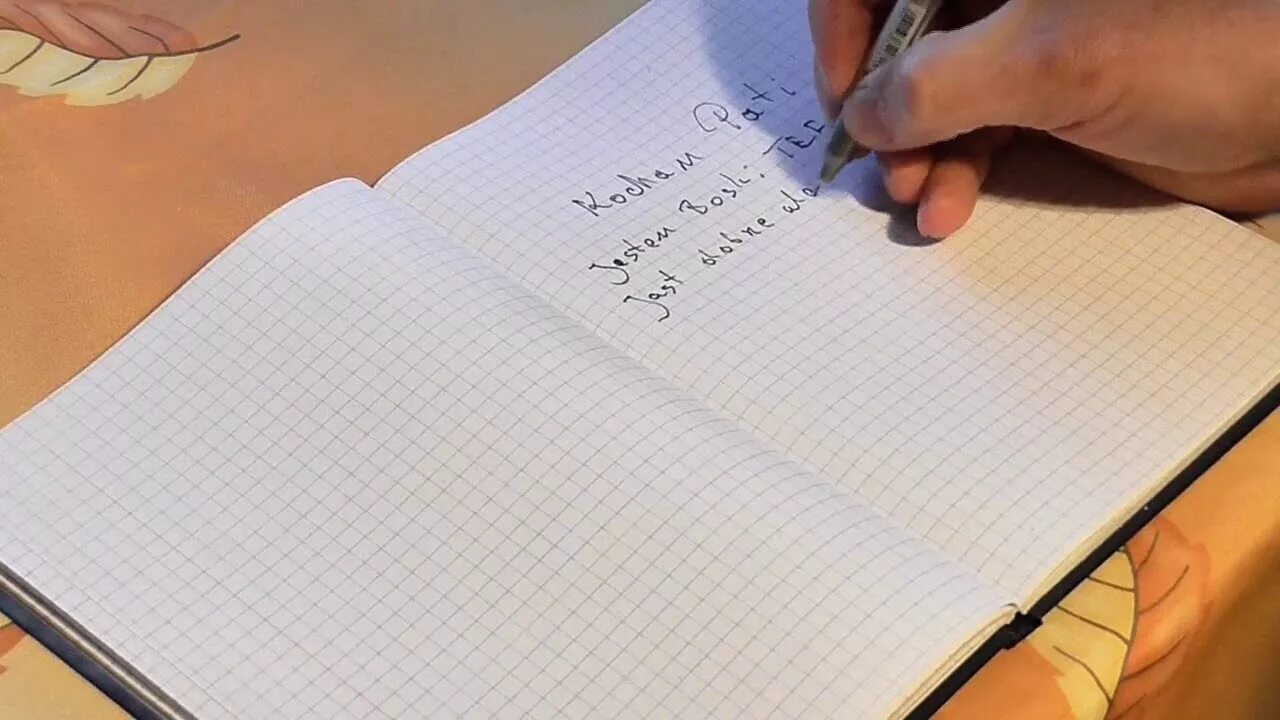 Kocham Pati
Jestem Boski
Jest dobrze ale